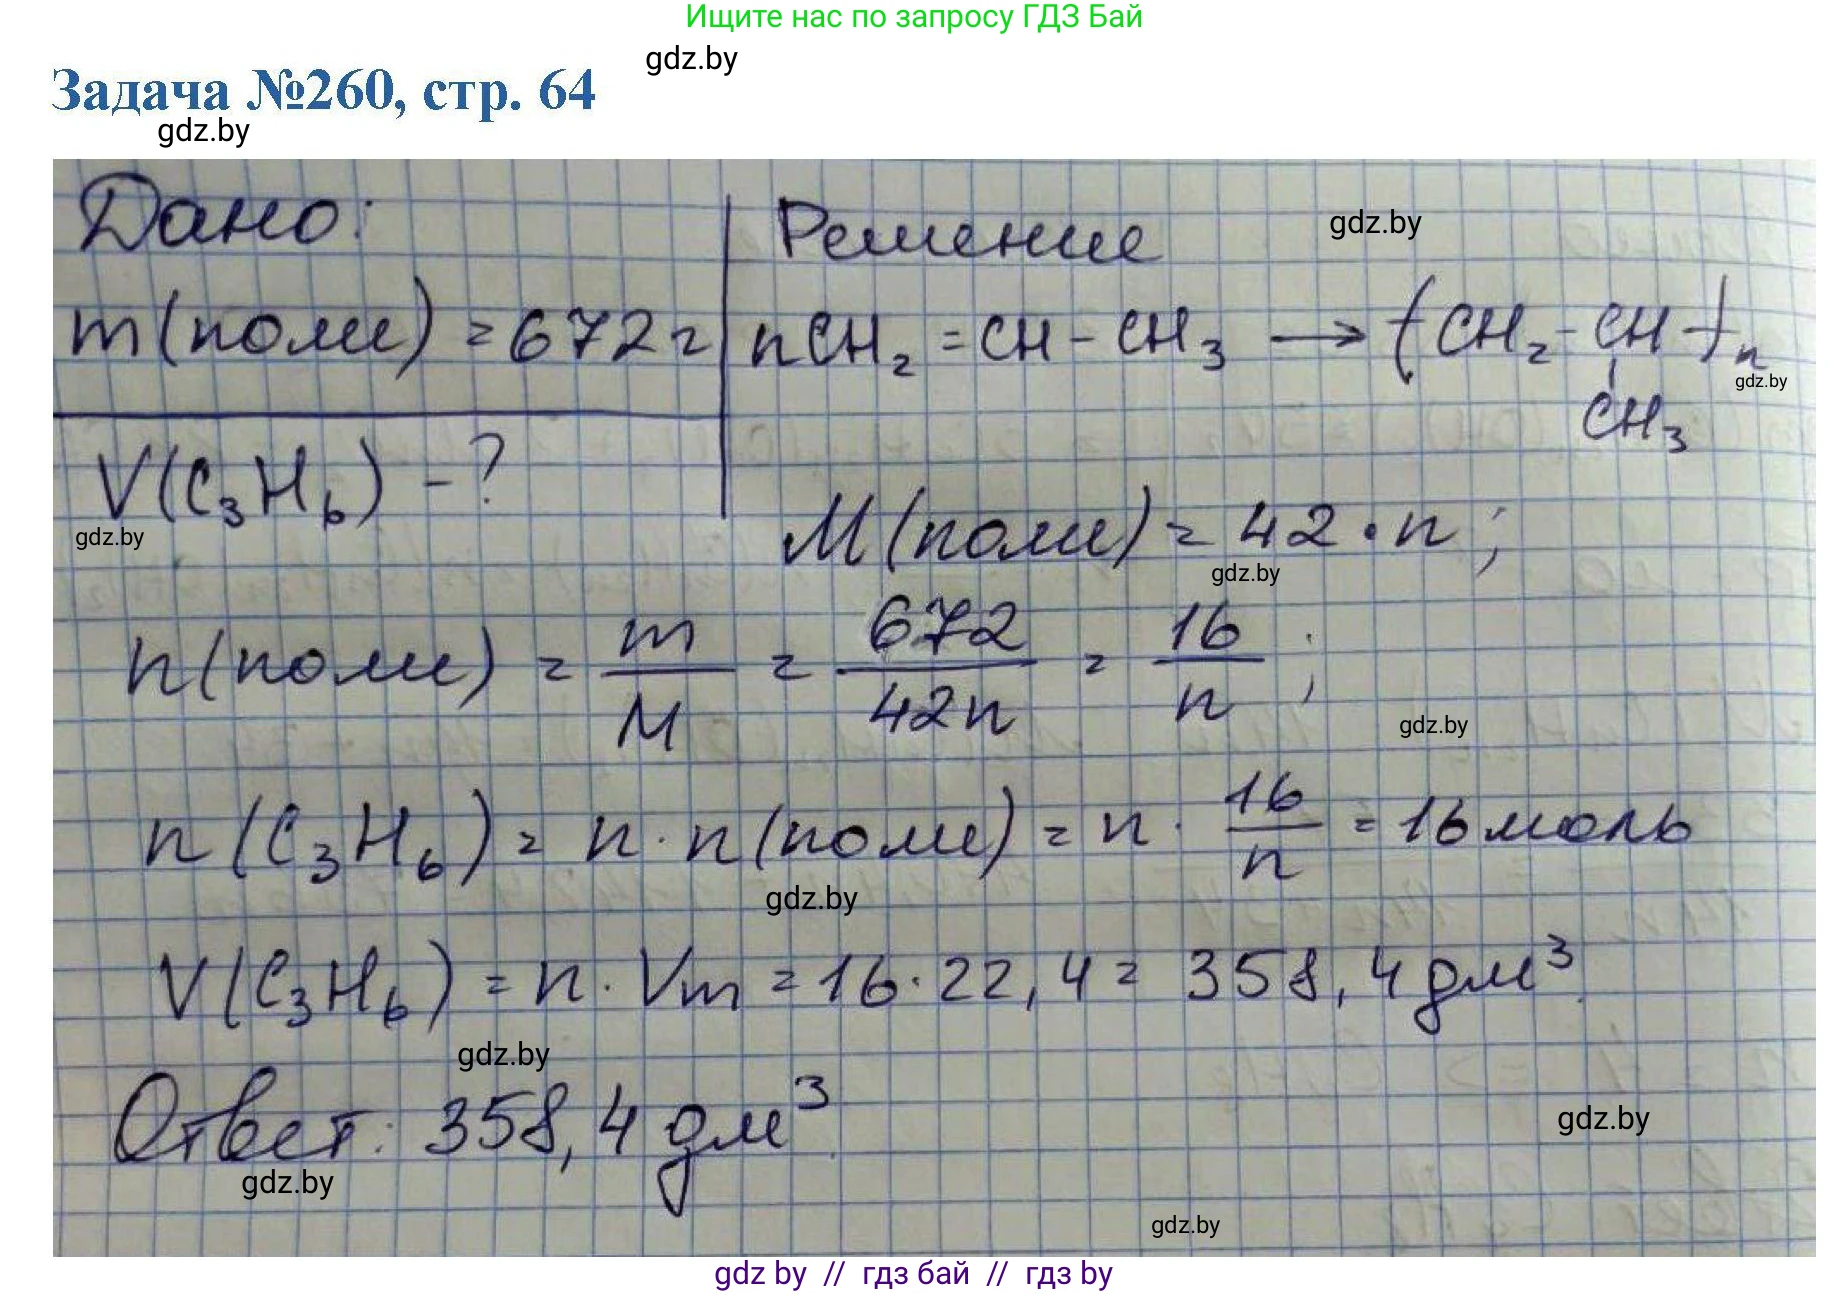 Ищите нас по запросу ГДЗ Бай
gdz.by
Задача №260, стр. 64
gdz.by
Дано:
Решение
gdz.by
m(поли) = 672 г
nCH₂ = CH - CH₃ → (CH₂ - CH)n
gdz.by
CH₃
V(C₃H₆) - ?
gdz.by
M(поли) = 42 · n;
gdz.by
n(поли) = m/M = 672/42n = 16/n;
gdz.by
n(C₃H₆) = n · n(поли) = n · 16/n = 16 моль
gdz.by
V(C₃H₆) = n · Vm = 16 · 22,4 = 358,4 дм³
gdz.by
Ответ: 358,4 дм³.
gdz.by
gdz.by
gdz.by
gdz by // гдз бай // гдз by